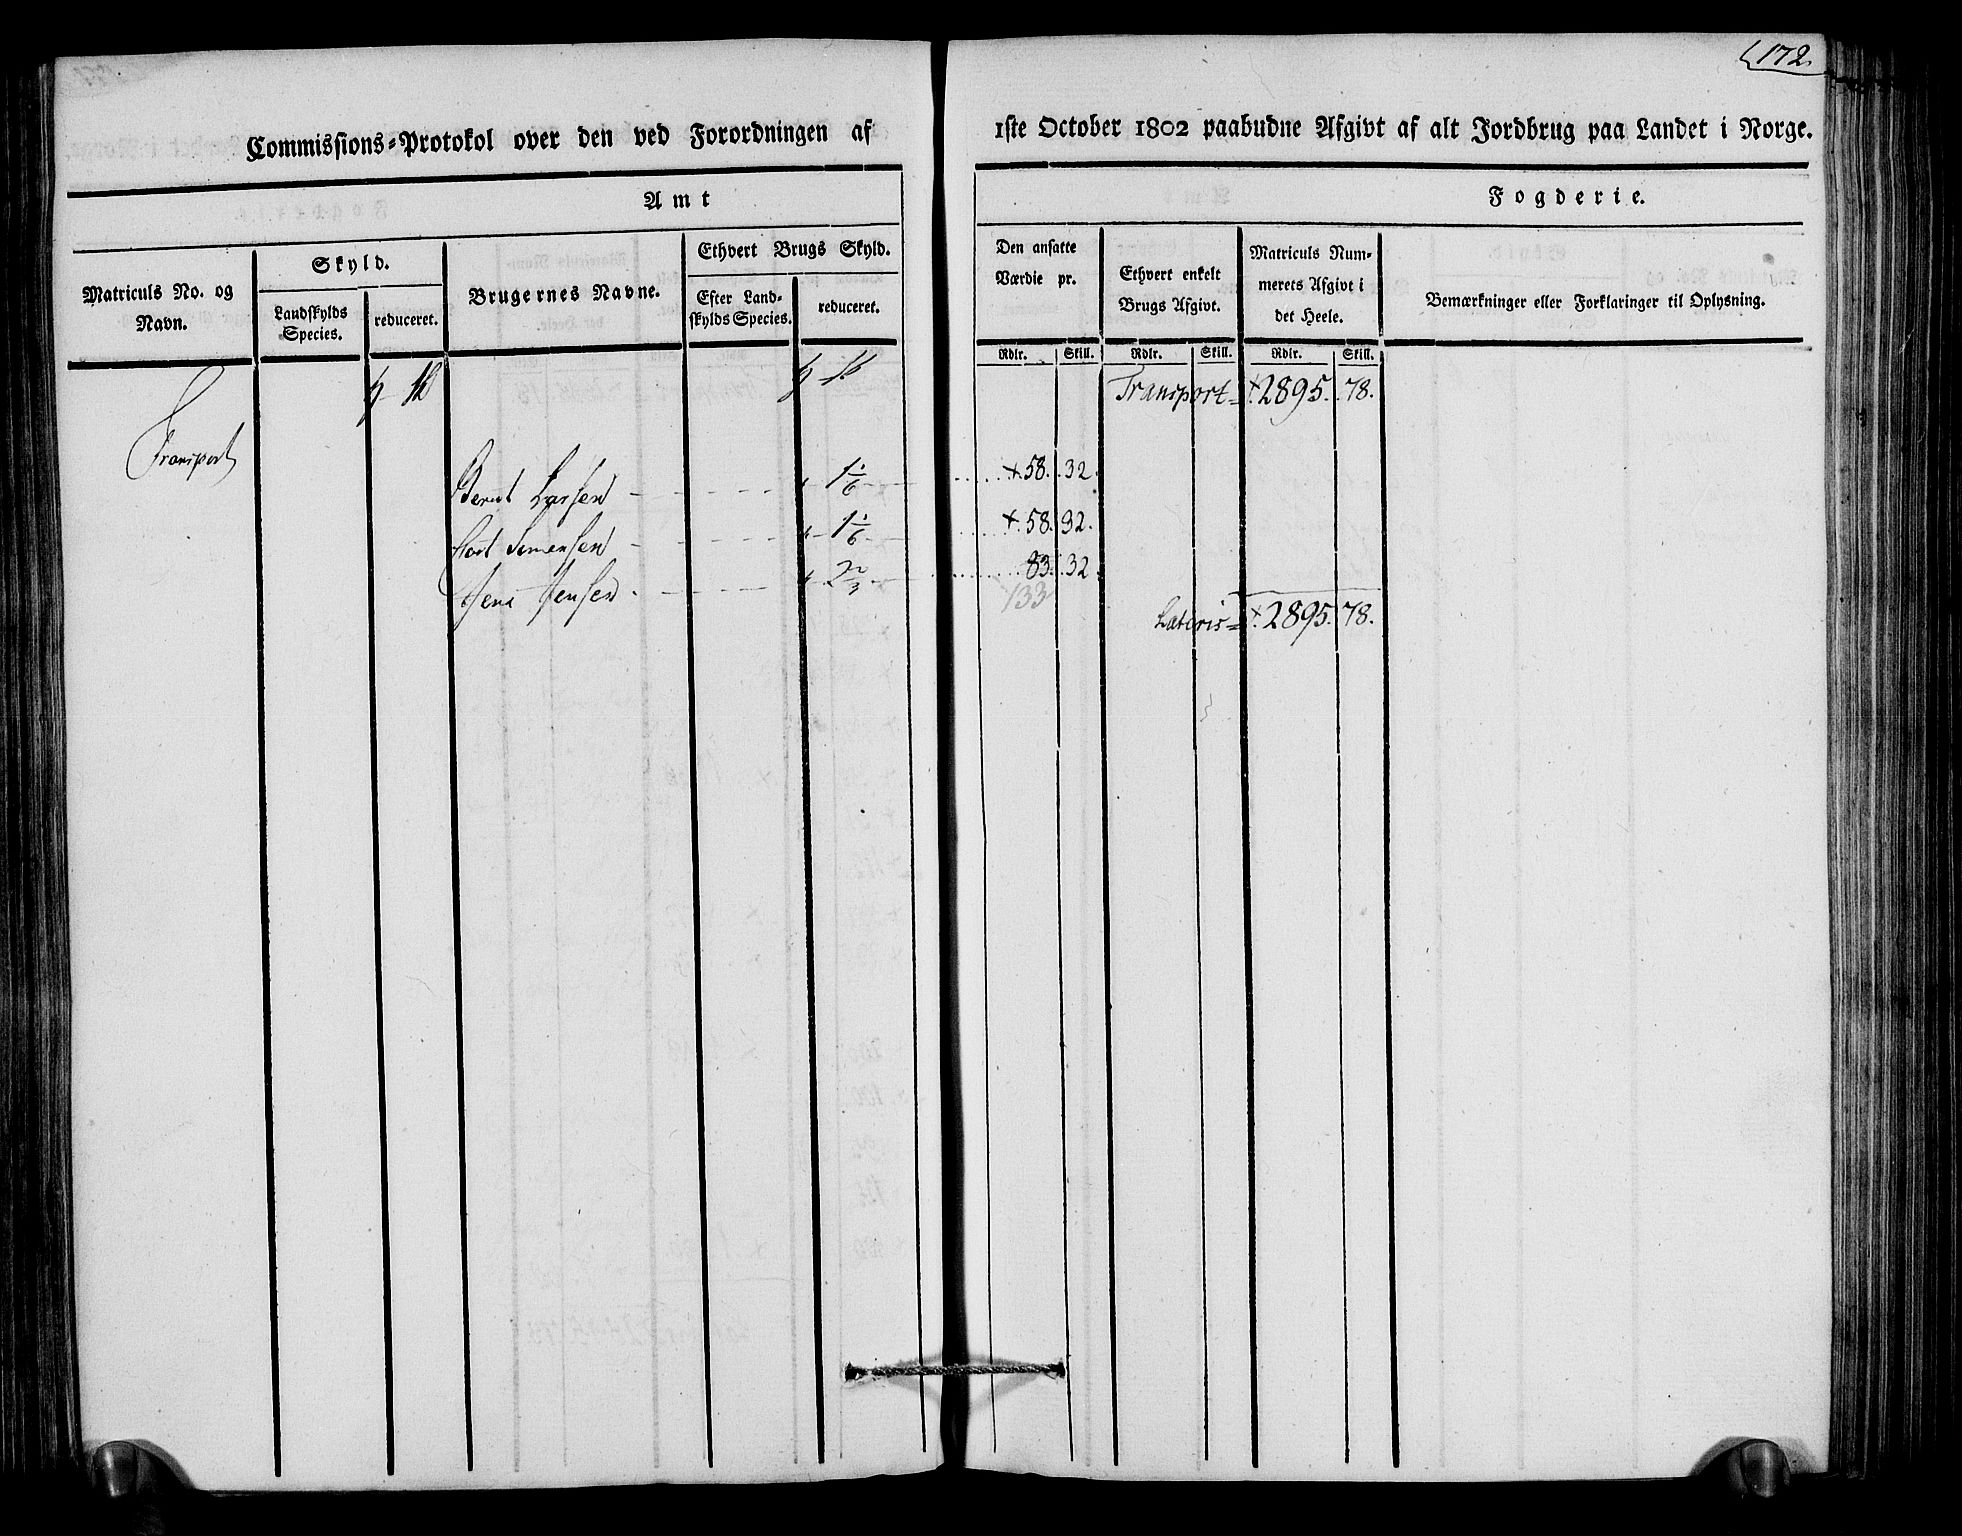 172.
Commissions-Protokol over den ved Forordningen af 1ste October 1802 paabudne Afgivt af alt Jordbrug paa Landet i Norge.
Amt Fogderie.
Matriculs No. og Navn.
Skyld.
Landskylds Species.
reduceret.
Brugernes Navne.
Ethvert Brugs Skyld.
Efter Landskylds Species.
reduceret.
Den ansatte Værdie pr.
Rdlr. Skill.
Ethvert enkelt Brugs Afgivt.
Rdlr. Skill.
Matriculs Nummerets Afgivt i det Heele.
Rdlr. Skill.
Bemærkninger eller Forklaringer til Oplysning.
Transport
Transport = 2895. 78.
Bernt Larsen 1 1/6 58. 32.
Simensen 1 1/6 58. 32.
Jens Jensen 2 2/3 83. 32
133
Lateris = 2895. 78.